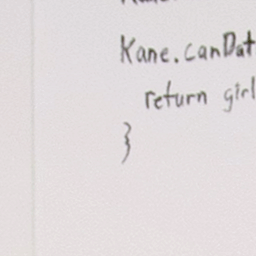 Kane.canDat
return girl
}